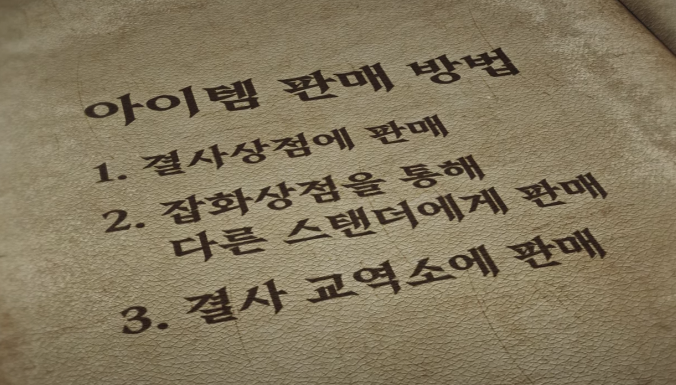 아이템 판매 방법
1. 결사상점에 판매
2. 잡화상점을 통해
다른 스탠더에게 판매
3. 결사 교역소에 판매